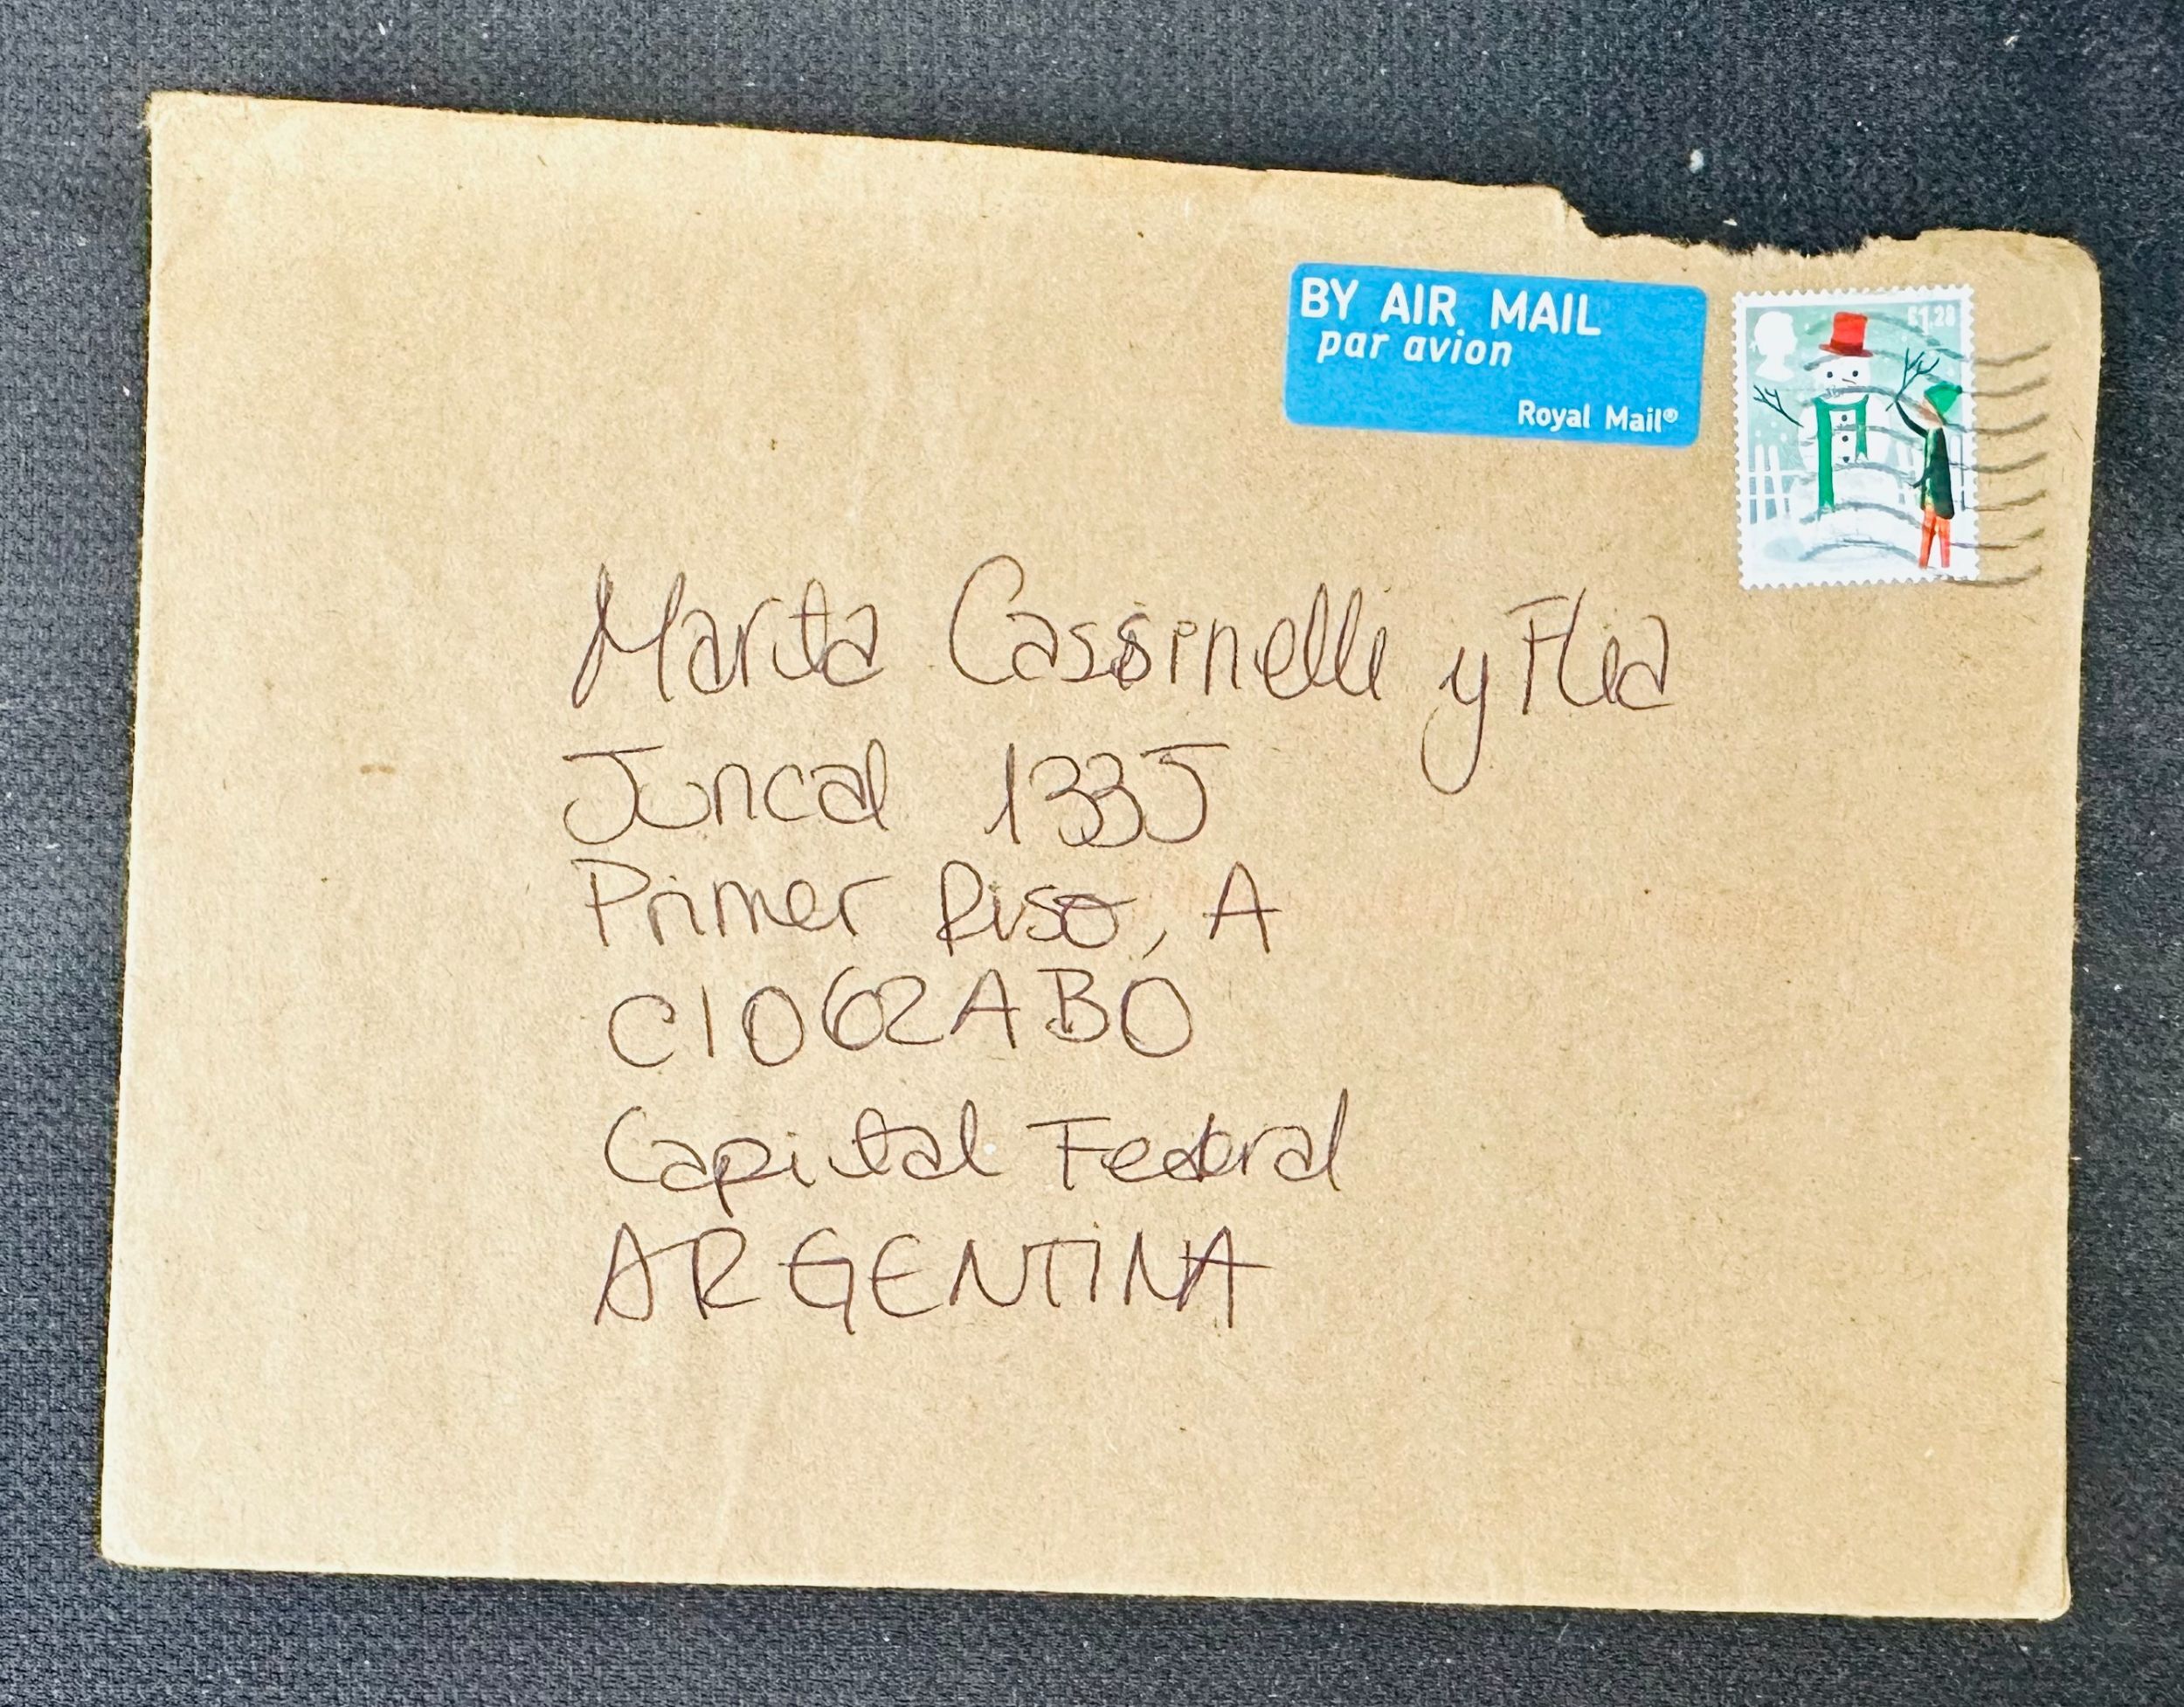 BY AIR MAIL
par avion
Royal Mail®
£1.28
Marta Cassinelli y Flia
Juncal 1335
Primer Piso, A
C1062ABO
Capital Federal
ARGENTINA